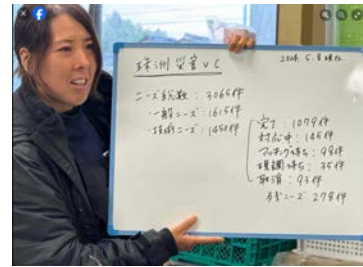 珠洲災害VC
2024.5.8現在
ニーズ総数：3065件
・一般ニーズ：1615件
・技術ニーズ：1450件
完了：1079件
対応中：145件
マッチング待ち：98件
現調待ち：35件
取消：93件
残ニーズ 278件